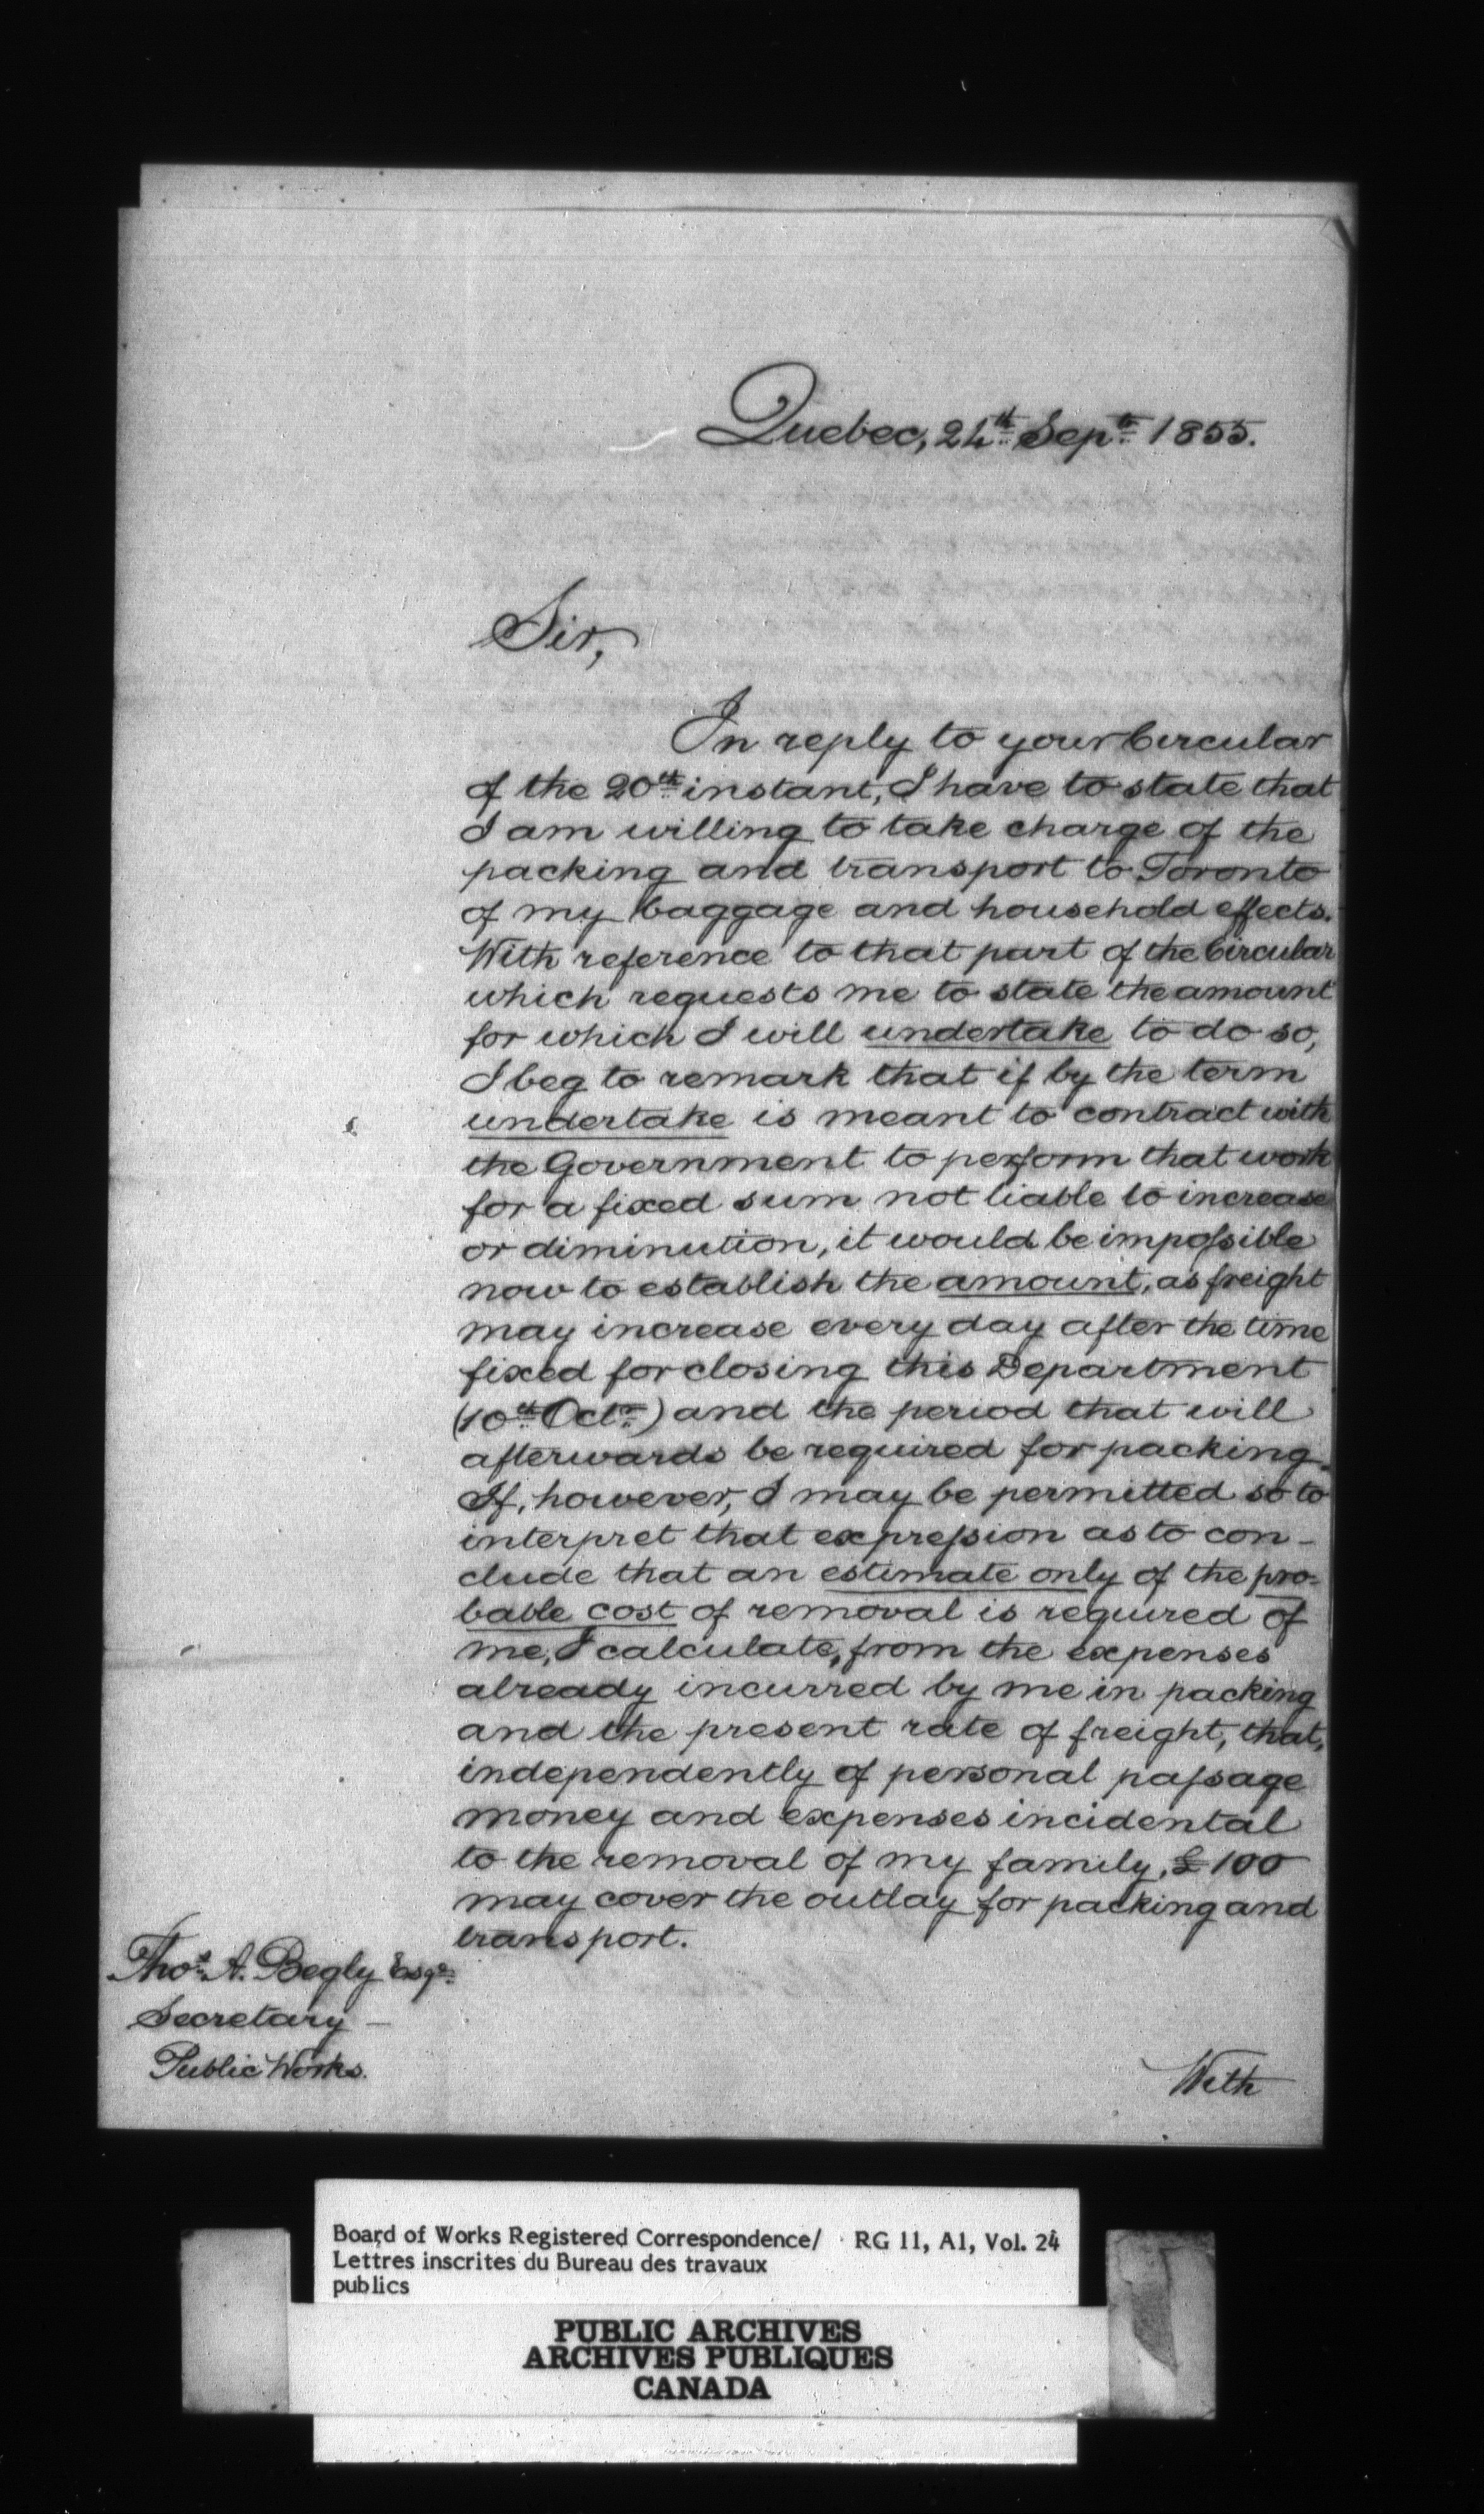 Quebec, 24th Septr 1855.
Sir,
In reply to your Circular
of the 20th instant, I have to state that
I am willing to take charge of the
packing and transport to Toronto
of my baggage and household effects.
With reference to that part of the Circular
which requests me to state the amount
for which I will undertake to do so,
I beg to remark that if by the term
undertake is meant to contract with
the Government to perform that work
for a fixed sum not liable to increase
or diminution, it would be impossible
now to establish the amount, as freight
may increase every day after the time
fixed for closing this Department
(10th Octr) and the period that will
afterwards be required for packing.
If, however, I may be permitted so to
interpret that expression as to con-
clude that an estimate only of the pro-
bable cost of removal is required of
me, I calculate, from the expenses
already incurred by me in packing
and the present rate of freight, that,
independently of personal passage
money and expenses incidental
to the removal of my family, £100
may cover the outlay for packing and
transport.
Thos A. Begly Esqe
Secretary –
Public Works.
With
Board of Works Registered Correspondence/ RG 11, A1, Vol. 24
Lettres inscrites du Bureau des travaux
publics
PUBLIC ARCHIVES
ARCHIVES PUBLIQUES
CANADA